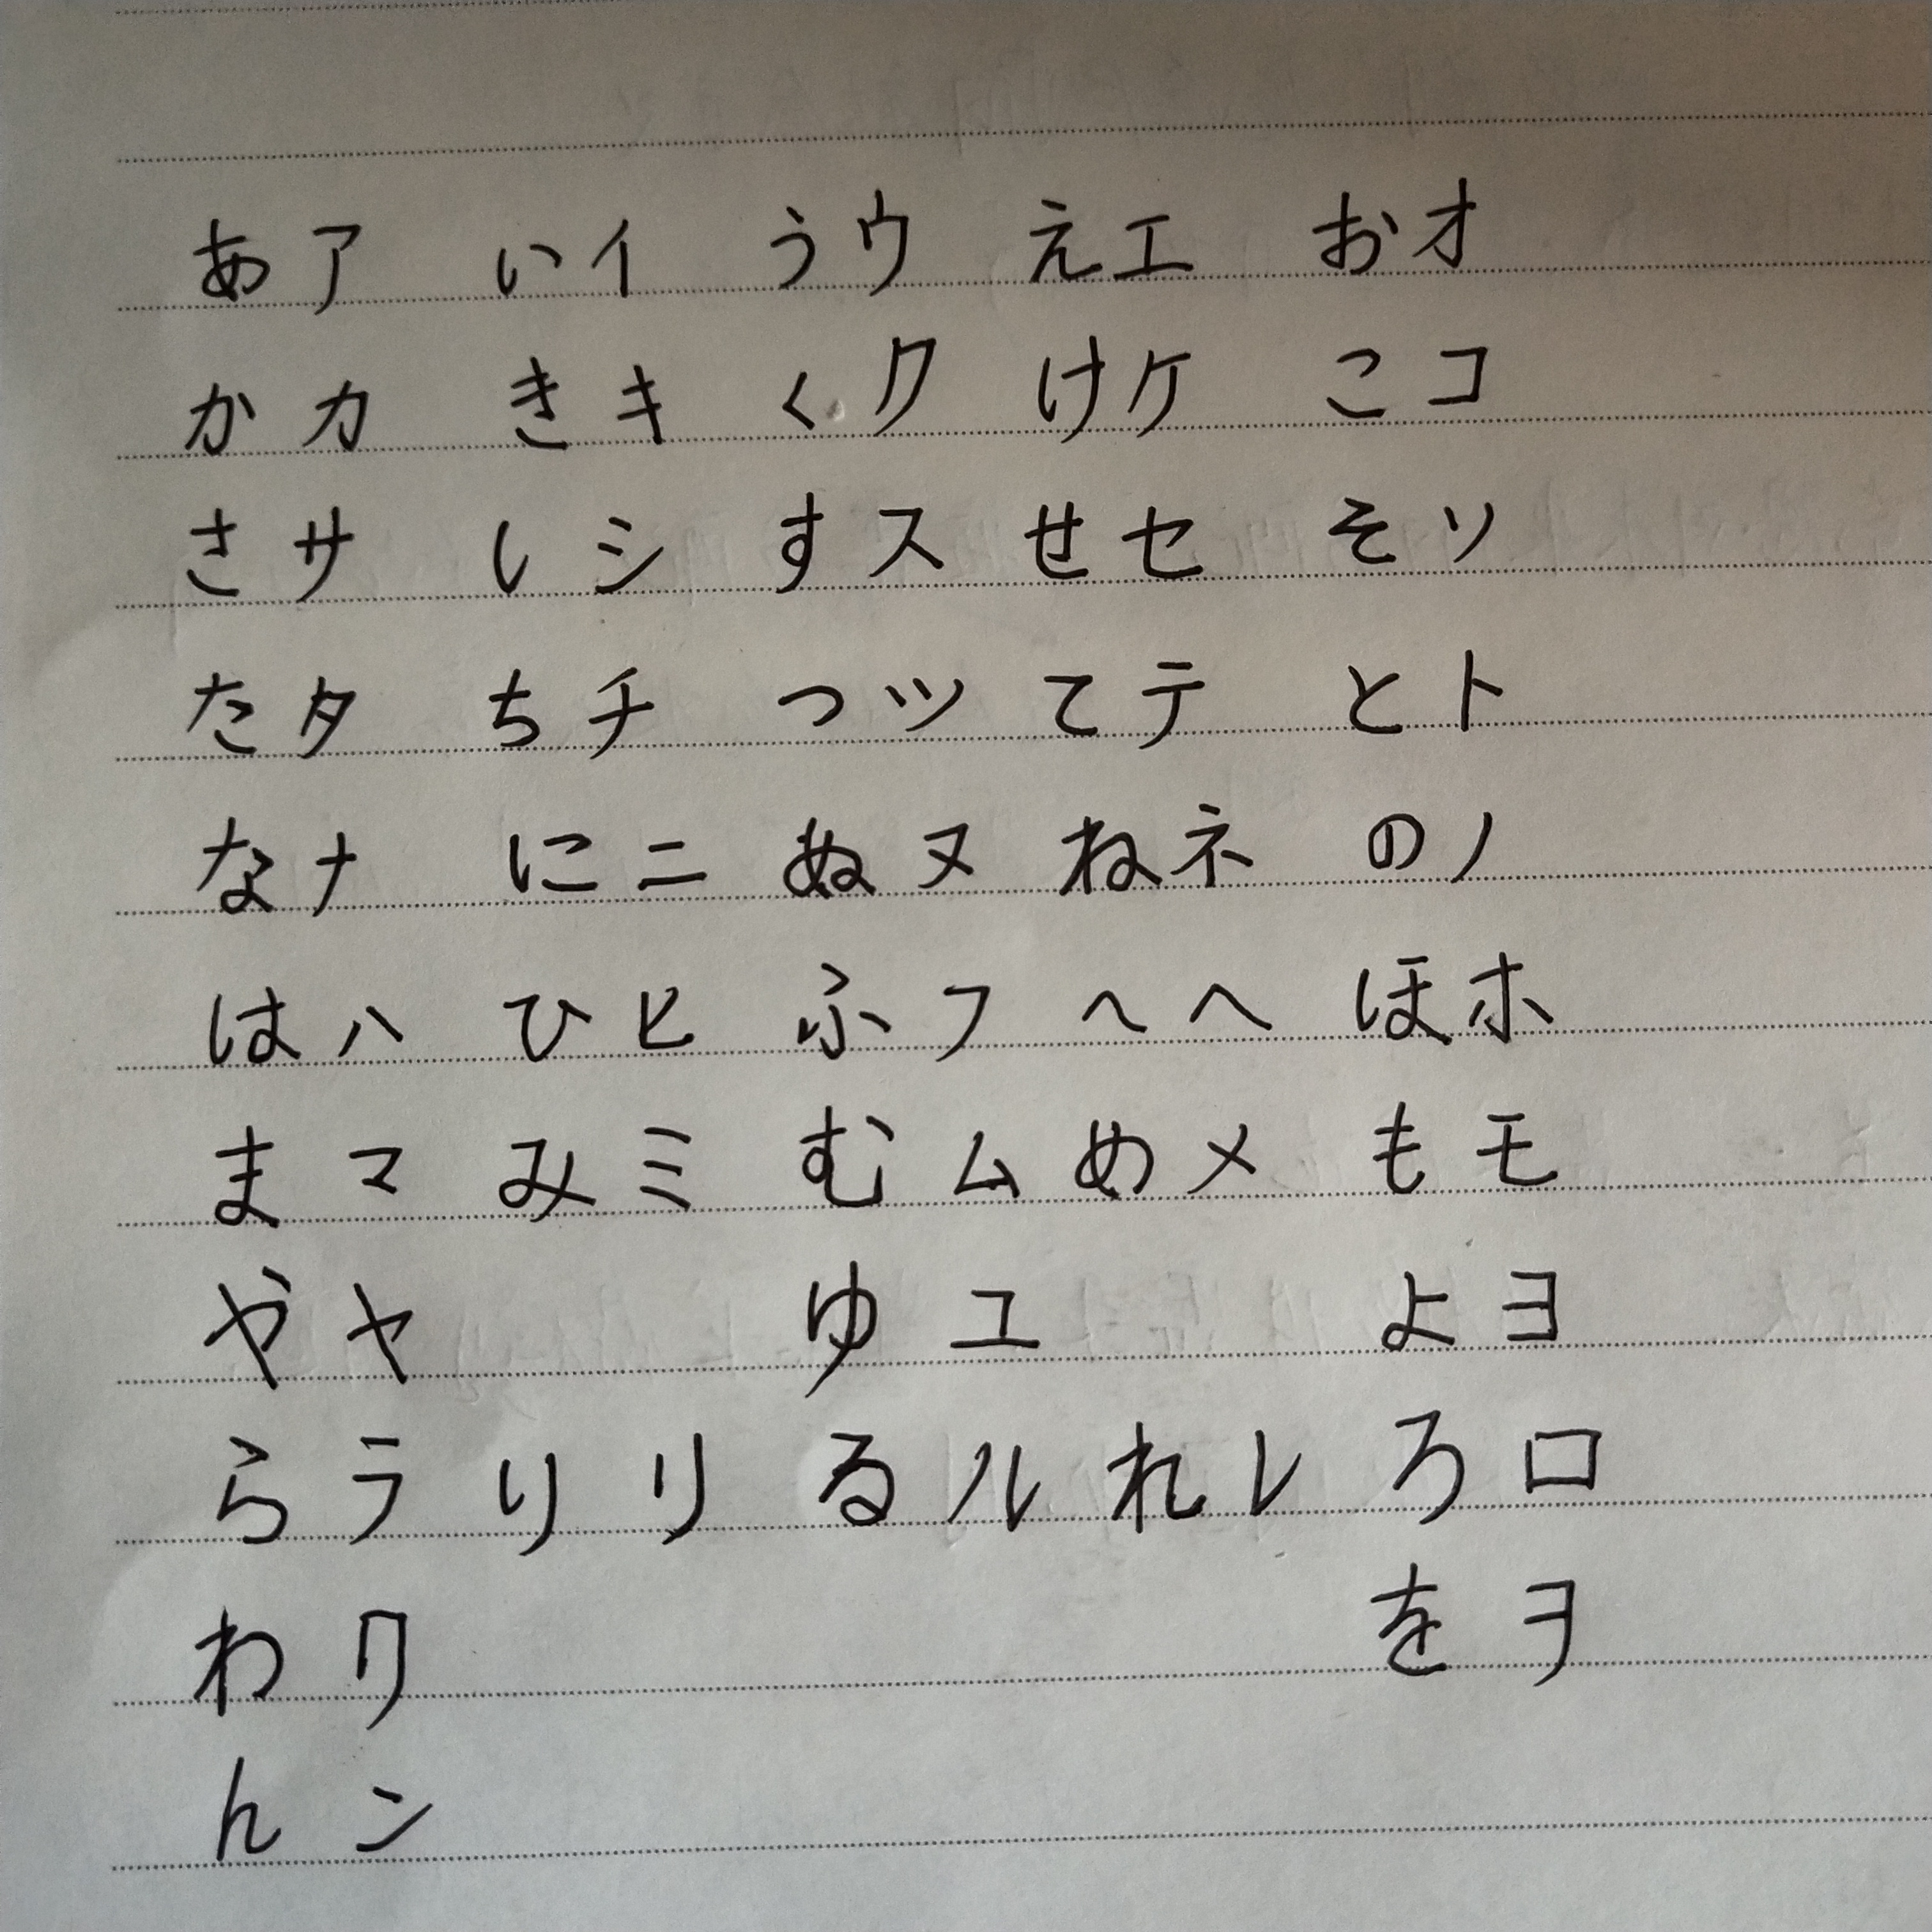 あア いイ うウ えエ おオ
かカ きキ くク けケ こコ
さサ しシ すス せセ そソ
たタ ちチ つツ てテ とト
なナ にニ ぬヌ ねネ のノ
はハ ひヒ ふフ へヘ ほホ
まマ みミ むム めメ もモ
やヤ ゆユ よヨ
らラ りリ るル れレ ろロ
わワ をヲ
んン